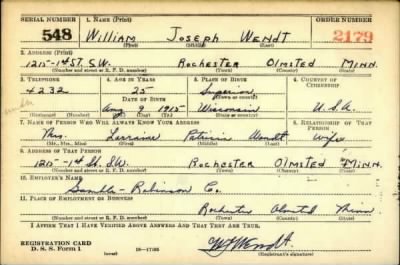 SERIAL NUMBER 1. NAME (Print) ORDER NUMBER
548 WILLIAM JOSEPH WENDT 2179
(First) (Middle) (Last)
2. ADDRESS (Print)
1215-1st ST. S.W. ROCHESTER OLMSTED MINN.
(Number and street or R. F. D. number) (Town) (County) (State)
3. TELEPHONE 4. AGE IN YEARS 5. PLACE OF BIRTH 6. COUNTRY OF CITIZENSHIP
4232 25 Superior
DATE OF BIRTH (Town or county)
Aug 9 1915 Wisconsin U.S.A.
(Exchange) (Number) (Mo.) (Day) (Yr.) (State or country)
7. NAME OF PERSON WHO WILL ALWAYS KNOW YOUR ADDRESS 8. RELATIONSHIP OF THAT PERSON
Mrs. Lorraine Patricia Wendt Wife
(Mr., Mrs., Miss) (First) (Middle) (Last)
9. ADDRESS OF THAT PERSON
1215-1st St. S.W. ROCHESTER OLMSTED MINN.
(Number and street or R. F. D. number) (Town) (County) (State)
10. EMPLOYER'S NAME
Gamble-Robinson Co.
11. PLACE OF EMPLOYMENT OR BUSINESS
Rochester Olmsted Minn
(Number and street or R. F. D. number) (Town) (County) (State)
I AFFIRM THAT I HAVE VERIFIED ABOVE ANSWERS AND THAT THEY ARE TRUE.
REGISTRATION CARD
D. S. S. Form 1 (over) 16-17105 W J Wendt.
(Registrant's signature)